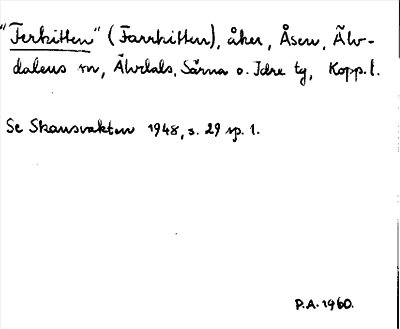 "Ferkitten" (Farrkitten), åker, Åsen, Älv-
dalens sn, Älvdals, Särna o. Idre tg, Kopp. l.
Se Skansvakten 1948, s. 29 sp. 1.
P.A. 1960.